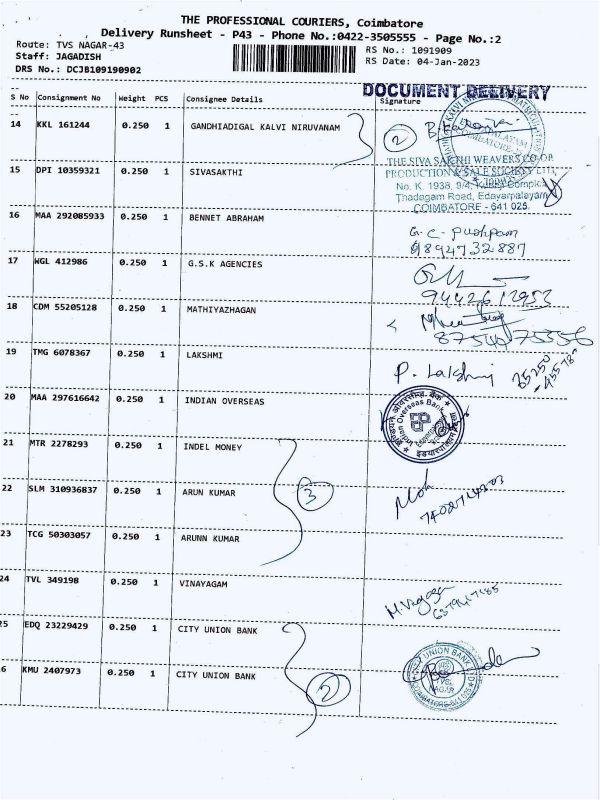 THE PROFESSIONAL COURIERS, Coimbatore
Delivery Runsheet - P43 - Phone No.:0422-3505555 - Page No.:2
Route: TVS NAGAR-43
Staff: JAGADISH
DRS No.: DCJB109190902
RS No.: 1091909
RS Date: 04-Jan-2023
DOCUMENT DELIVERY
S No Consignment No Weight PCS Consignee Details Signature
14 KKL 161244 0.250 1 GANDHIADIGAL KALVI NIRUVANAM 2
15 DPI 10359321 0.250 1 SIVASAKTHI
THE SIVA SAKTHI WEAVERS CO-OP
PRODUCTION & SALE SOCIETY LTD,
No. K. 1938, 9/4, Complex
Thadagam Road, Edayarpalayam
COIMBATORE - 641 025.
16 MAA 292085933 0.250 1 BENNET ABRAHAM
G.C. Pushpam
9894732887
17 WGL 412986 0.250 1 G.S.K AGENCIES
9442612953
18 CDM 55205128 0.250 1 MATHIYAZHAGAN
19 TMG 6078367 0.250 1 LAKSHMI P. Lakshmi
20 MAA 297616642 0.250 1 INDIAN OVERSEAS
Indian Overseas Bank
21 MTR 2278293 0.250 1 INDEL MONEY
22 SLM 310936837 0.250 1 ARUN KUMAR 3
23 TCG 50303057 0.250 1 ARUNN KUMAR
24 TVL 349198 0.250 1 VINAYAGAM
25 EDQ 23229429 0.250 1 CITY UNION BANK
CITY UNION BANK
TVS
NAGAR
COIMBATORE-641 025
6 KMU 2407973 0.250 1 CITY UNION BANK 2